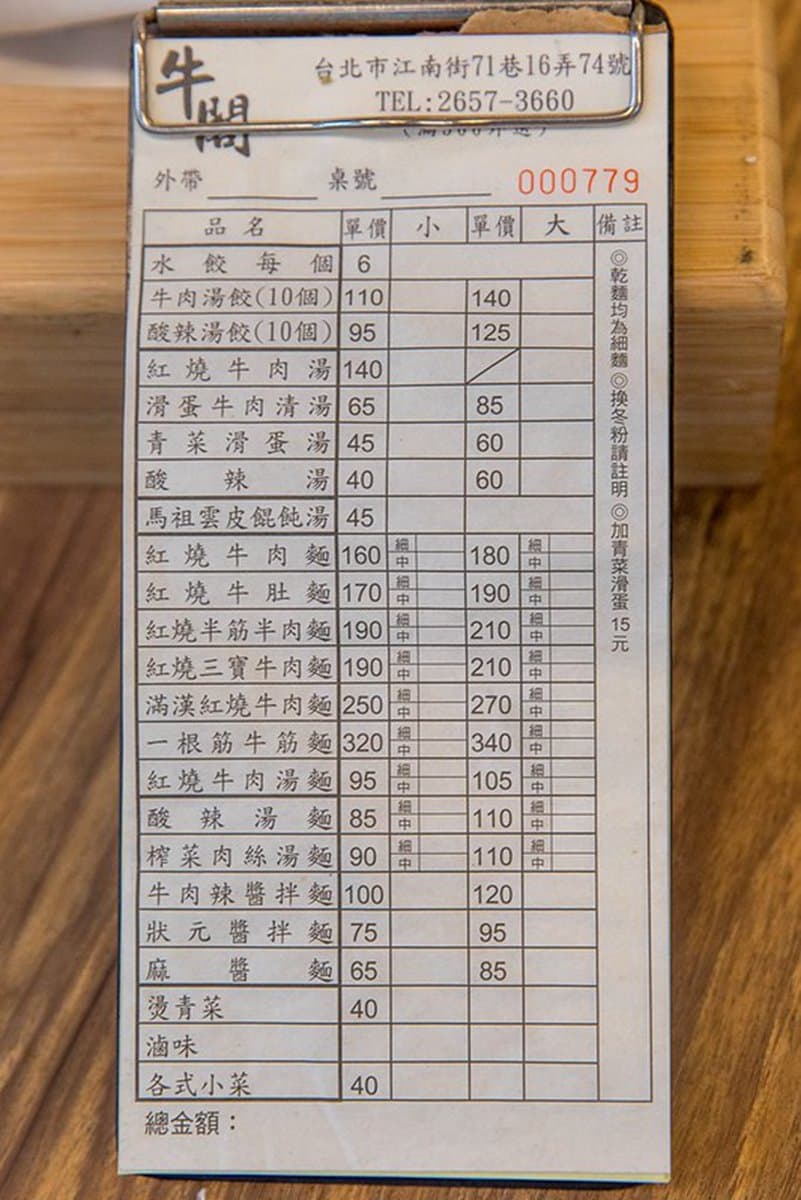 牛閣
台北市江南街71巷16弄74號
TEL:2657-3660
外帶 桌號 000779
品名 單價 小 單價 大 備註
水餃每個 6
牛肉湯餃(10個) 110 140
酸辣湯餃(10個) 95 125
紅燒牛肉湯 140
滑蛋牛肉清湯 65 85
青菜滑蛋湯 45 60
酸辣湯 40 60
馬祖雲皮餛飩湯 45
紅燒牛肉麵 160 細 中 180 細 中
紅燒牛肚麵 170 細 中 190 細 中
紅燒半筋半肉麵 190 細 中 210 細 中
紅燒三寶牛肉麵 190 細 中 210 細 中
滿漢紅燒牛肉麵 250 細 中 270 細 中
一根筋牛筋麵 320 細 中 340 細 中
紅燒牛肉湯麵 95 細 中 105 細 中
酸辣湯麵 85 細 中 110 細 中
榨菜肉絲湯麵 90 細 中 110 細 中
牛肉辣醬拌麵 100 120
狀元醬拌麵 75 95
麻醬麵 65 85
燙青菜 40
滷味
各式小菜 40
◎乾麵均為細麵 ◎換冬粉請註明 ◎加青菜滑蛋15元
總金額：